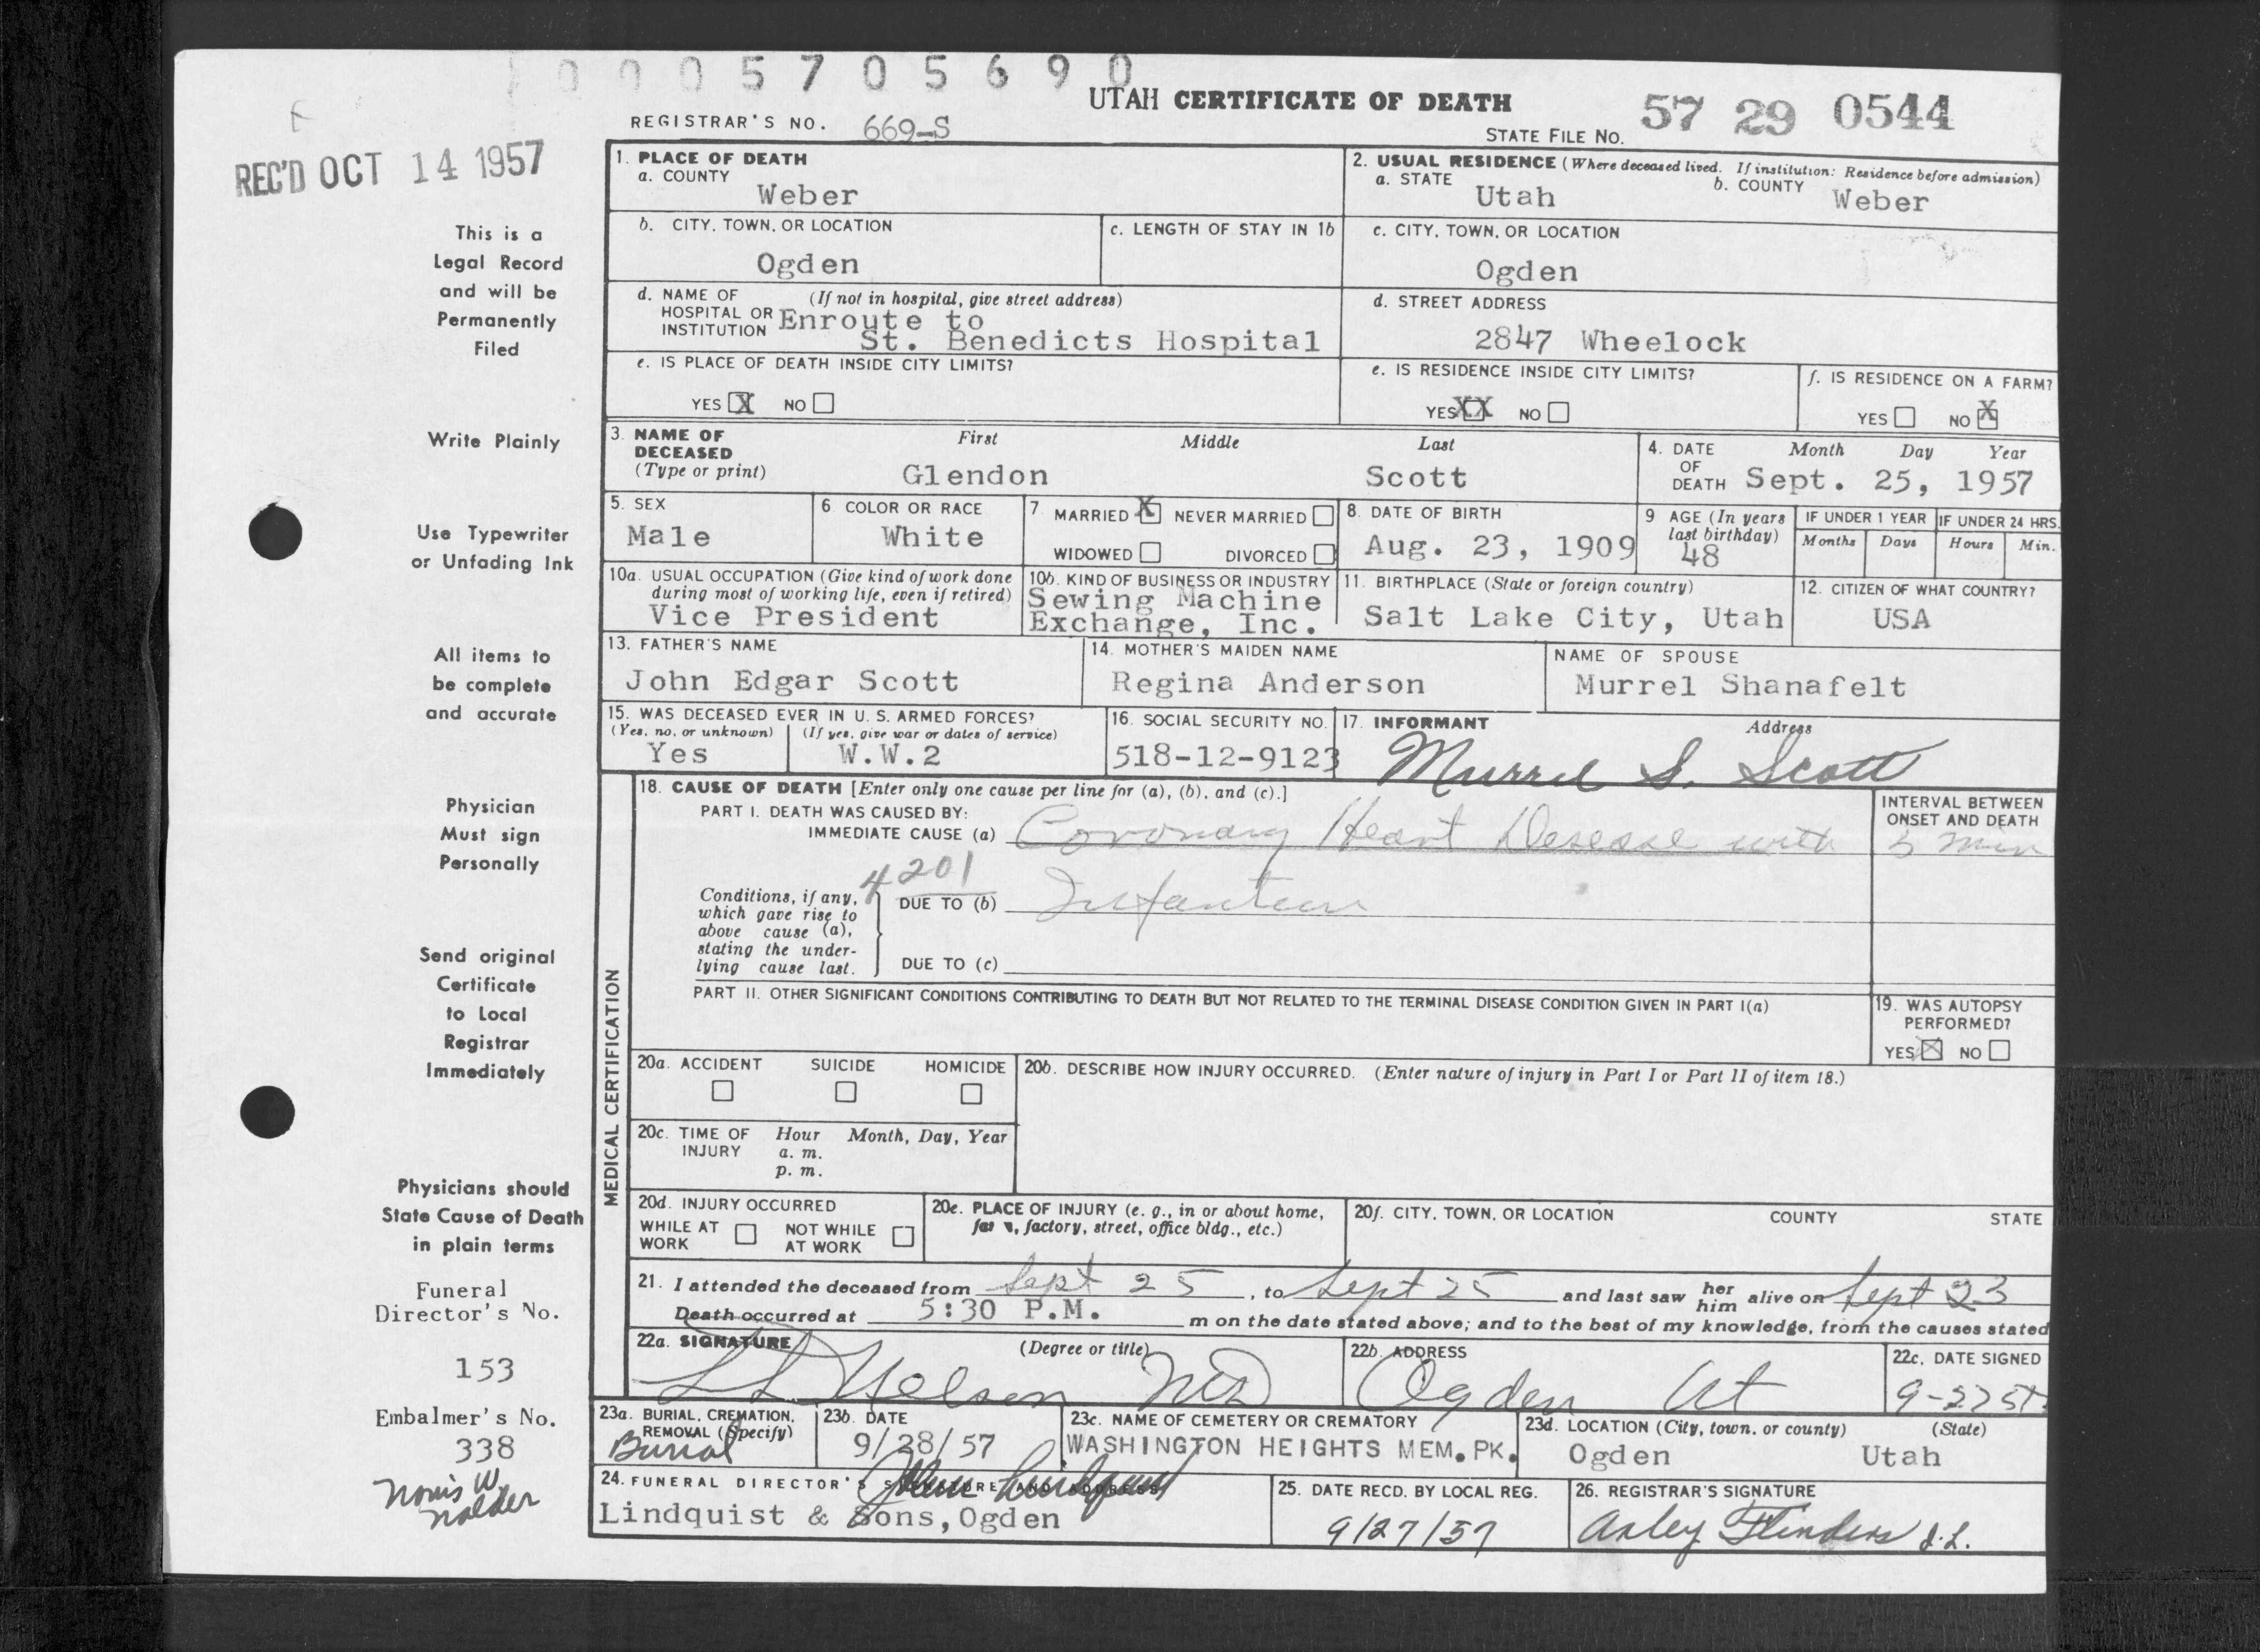 0 0 0 5 7 0 5 6 9 0
UTAH CERTIFICATE OF DEATH
REGISTRAR'S NO. 669-S
STATE FILE NO. 57 29 0544
REC'D OCT 14 1957
This is a
Legal Record
and will be
Permanently
Filed
Write Plainly
Use Typewriter
or Unfading Ink
All items to
be complete
and accurate
Physician
Must sign
Personally
Send original
Certificate
to Local
Registrar
Immediately
Physicians should
State Cause of Death
in plain terms
Funeral
Director's No.
153
Embalmer's No.
338
Norris W.
Nalder
1. PLACE OF DEATH
a. COUNTY
Weber
2. USUAL RESIDENCE (Where deceased lived. If institution: Residence before admission)
a. STATE Utah b. COUNTY Weber
b. CITY, TOWN, OR LOCATION
Ogden
c. LENGTH OF STAY IN 1b
c. CITY, TOWN, OR LOCATION
Ogden
d. NAME OF (If not in hospital, give street address)
HOSPITAL OR
INSTITUTION
Enroute to
St. Benedicts Hospital
d. STREET ADDRESS
2847 Wheelock
e. IS PLACE OF DEATH INSIDE CITY LIMITS?
YES X NO
e. IS RESIDENCE INSIDE CITY LIMITS?
YES XX NO
f. IS RESIDENCE ON A FARM?
YES NO X
3. NAME OF
DECEASED
(Type or print)
First Middle Last
Glendon Scott
4. DATE
OF
DEATH
Month Day Year
Sept. 25, 1957
5. SEX
Male
6 COLOR OR RACE
White
7. MARRIED X NEVER MARRIED
WIDOWED DIVORCED
8. DATE OF BIRTH
Aug. 23, 1909
9 AGE (In years
last birthday)
48
IF UNDER 1 YEAR
Months Days
IF UNDER 24 HRS.
Hours Min.
10a. USUAL OCCUPATION (Give kind of work done
during most of working life, even if retired)
Vice President
10b. KIND OF BUSINESS OR INDUSTRY
Sewing Machine
Exchange, Inc.
11. BIRTHPLACE (State or foreign country)
Salt Lake City, Utah
12. CITIZEN OF WHAT COUNTRY?
USA
13. FATHER'S NAME
John Edgar Scott
14. MOTHER'S MAIDEN NAME
Regina Anderson
NAME OF SPOUSE
Murrel Shanafelt
15. WAS DECEASED EVER IN U. S. ARMED FORCES?
(Yes, no, or unknown) (If yes, give war or dates of service)
Yes W.W.2
16. SOCIAL SECURITY NO.
518-12-9123
17. INFORMANT Address
Murrel S. Scott
MEDICAL CERTIFICATION
18. CAUSE OF DEATH [Enter only one cause per line for (a), (b), and (c).]
PART I. DEATH WAS CAUSED BY:
IMMEDIATE CAUSE (a) Coronary Heart Disease with
INTERVAL BETWEEN
ONSET AND DEATH
5 min
4201
Conditions, if any,
which gave rise to
above cause (a),
stating the under-
lying cause last.
DUE TO (b)
DUE TO (c)
PART II. OTHER SIGNIFICANT CONDITIONS CONTRIBUTING TO DEATH BUT NOT RELATED TO THE TERMINAL DISEASE CONDITION GIVEN IN PART I(a)
19. WAS AUTOPSY
PERFORMED?
YES X NO
20a. ACCIDENT SUICIDE HOMICIDE
20b. DESCRIBE HOW INJURY OCCURRED. (Enter nature of injury in Part I or Part II of item 18.)
20c. TIME OF
INJURY
Hour Month, Day, Year
a. m.
p. m.
20d. INJURY OCCURRED
WHILE AT
WORK
NOT WHILE
AT WORK
20e. PLACE OF INJURY (e. g., in or about home,
factory, street, office bldg., etc.)
20f. CITY, TOWN, OR LOCATION COUNTY STATE
21. I attended the deceased from Sept 25, to Sept 25 and last saw her him alive on Sept 23
Death occurred at 5:30 P.M. m on the date stated above; and to the best of my knowledge, from the causes stated
22a. SIGNATURE (Degree or title)
Nelson MD
22b. ADDRESS
Ogden Ut
22c. DATE SIGNED
9-27 57
23a. BURIAL, CREMATION,
REMOVAL (Specify)
Burial
23b. DATE
9/28/57
23c. NAME OF CEMETERY OR CREMATORY
WASHINGTON HEIGHTS MEM. PK.
23d. LOCATION (City, town, or county) (State)
Ogden Utah
24. FUNERAL DIRECTOR'S SIGNATURE AND ADDRESS
Lindquist
Lindquist & Sons, Ogden
25. DATE RECD. BY LOCAL REG.
9/27/57
26. REGISTRAR'S SIGNATURE
Arley Flinders J.L.